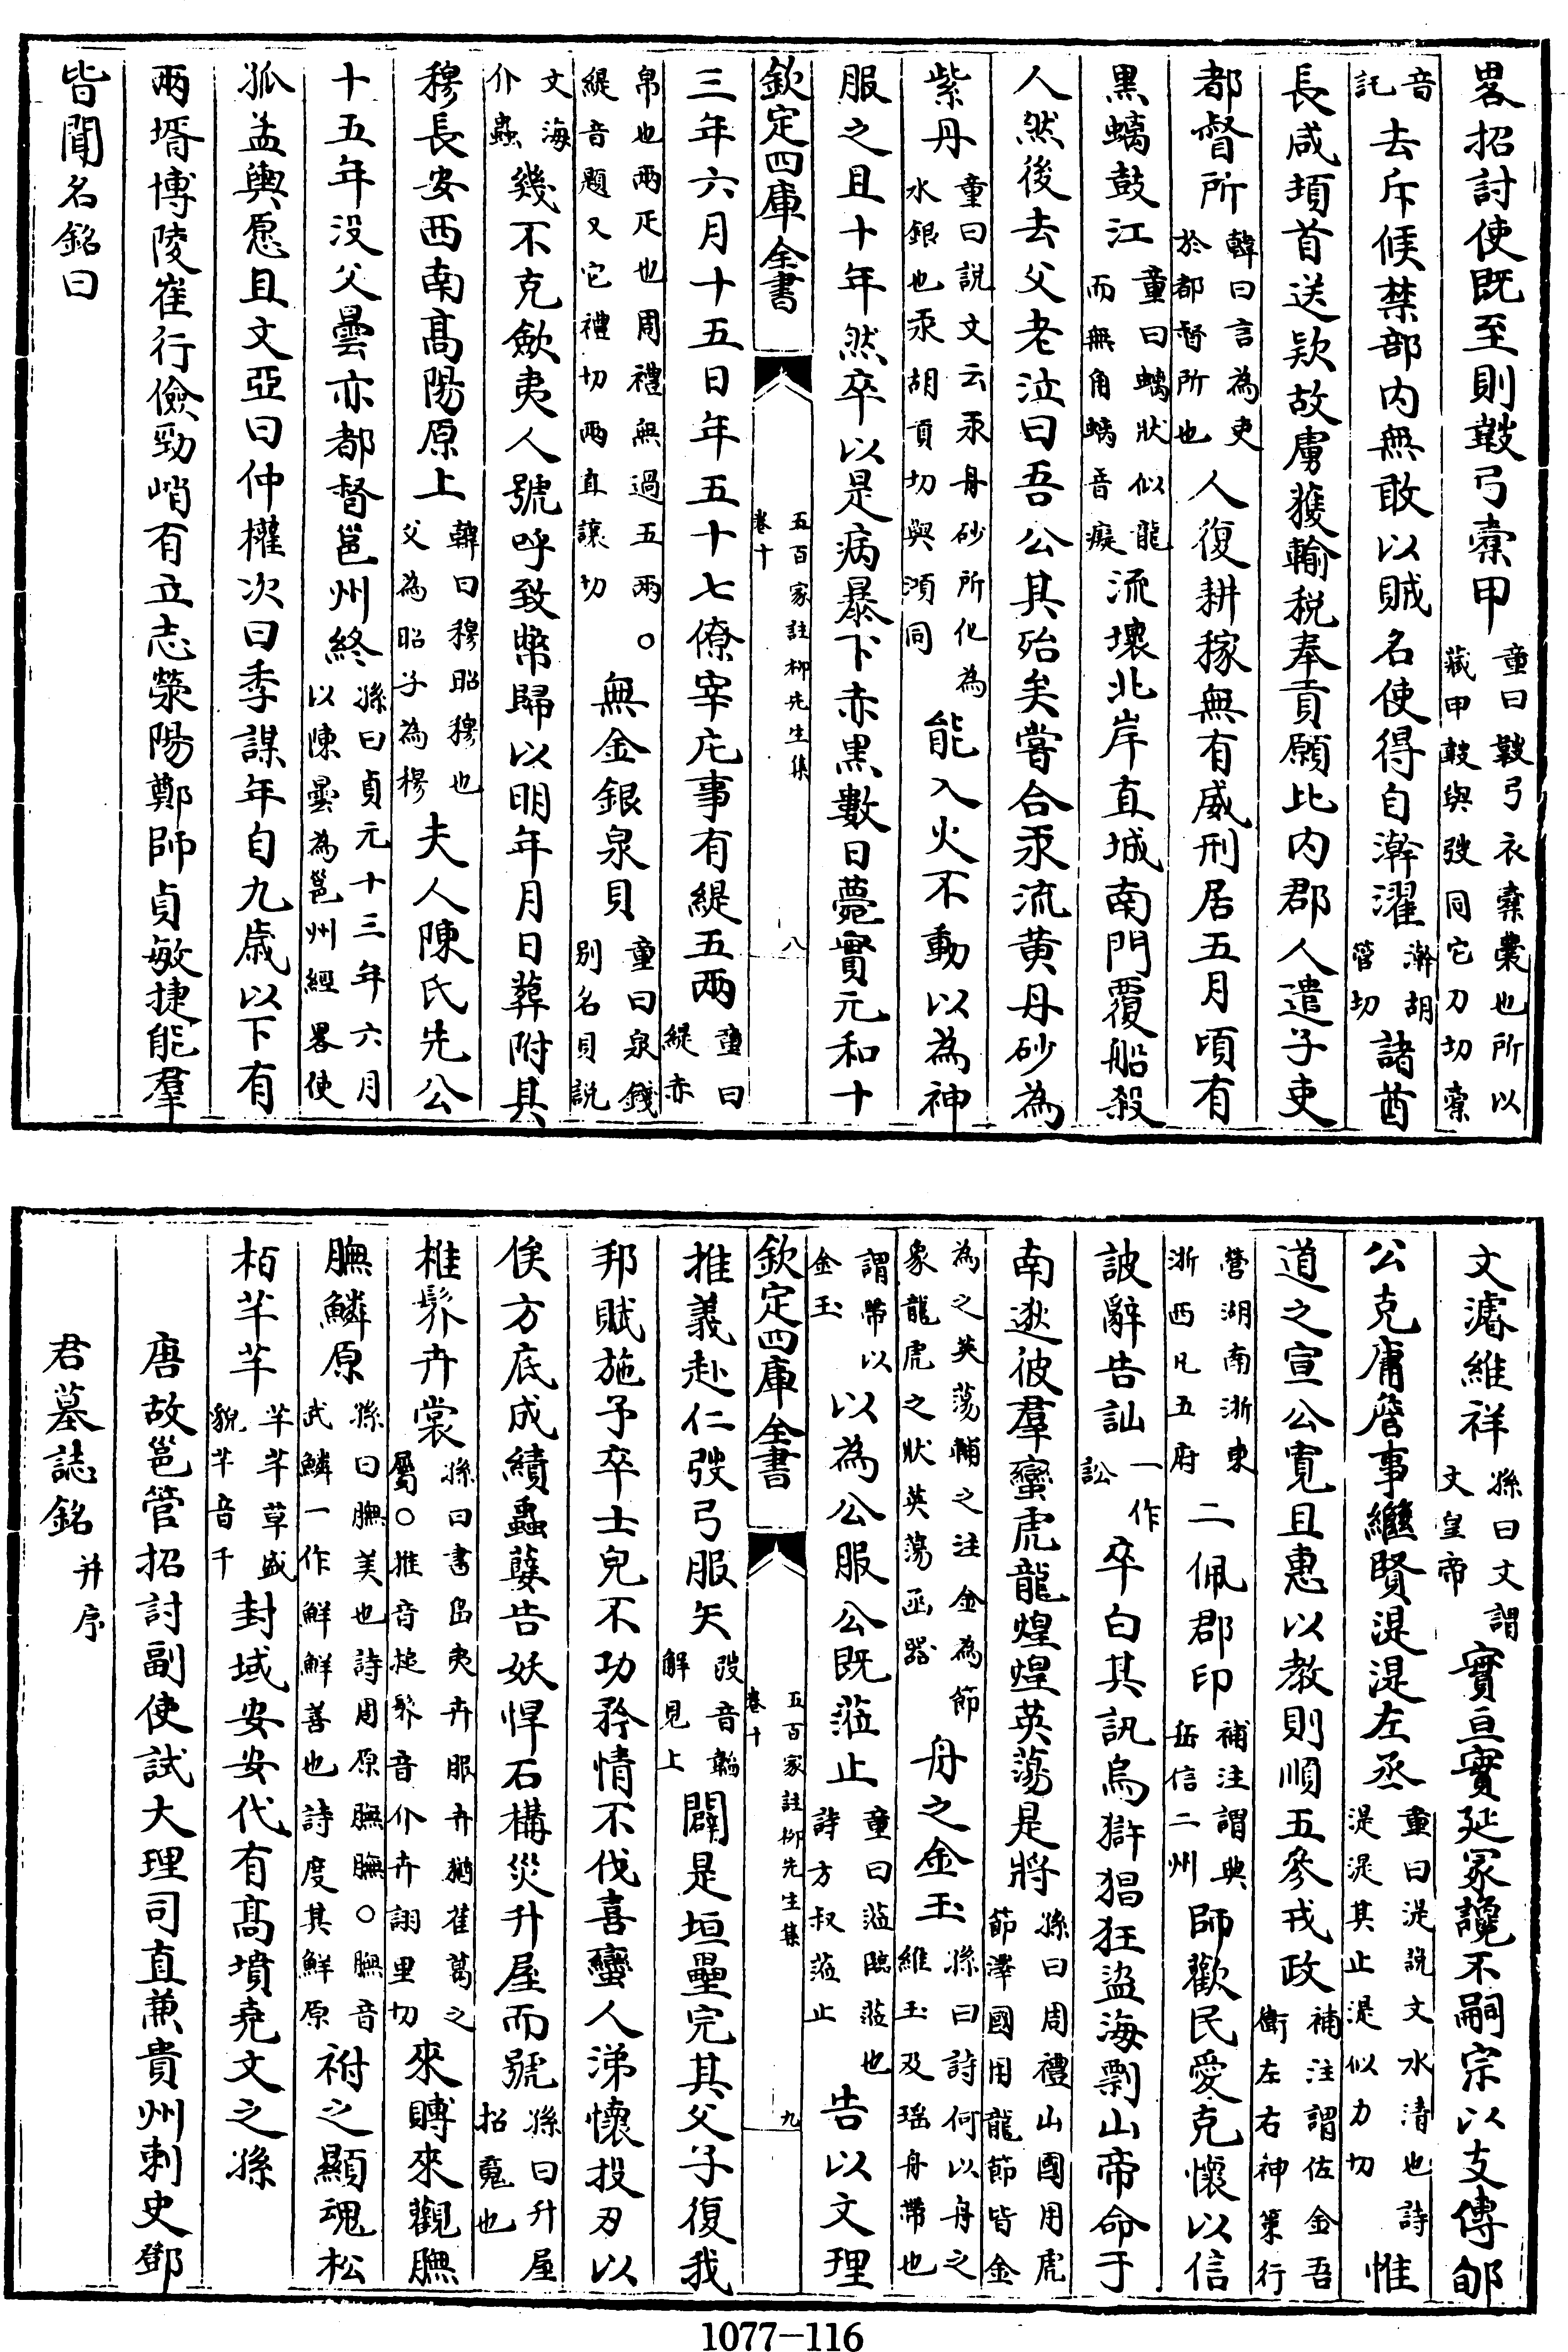 畧招討使既至則韔弓櫜甲童曰韔弓衣櫜橐也所以藏甲韔與弢同它刀切櫜
音託去斥候禁部内無敢以賊名使得自澣濯澣胡管切諸酋
長咸頫首送欵故虜獲輸税奉貢願比内郡人遣子吏
都督所韓曰言為吏於都督所也人復耕稼無有威刑居五月頃有
黒螭鼓江童曰螭狀似龍而無角螭音癡流壊北岸直城南門覆船殺
人然後去父老泣曰吾公其殆矣嘗合汞流黄丹砂為
紫丹童曰説文云汞丹砂所化為水銀也汞胡貢切與澒同能入火不動以為神
服之且十年然卒以是病暴下赤黒數日薨實元和十
欽定四庫全書 五百家註柳先生集 卷十 八
三年六月十五日年五十七僚宰庀事有緹五兩童曰緹赤
帛也兩疋也周禮無過五兩○緹音題又它禮切兩直讓切無金銀泉貝童曰泉錢别名貝説
文海介蟲幾不克斂夷人號呼致幣歸以明年月日葬附其
穆長安西南髙陽原上韓曰穆昭穆也父為昭子為穆夫人陳氏先公
十五年没父曇亦都督邕州終孫曰貞元十三年六月以陳曇為邕州經畧使
孤孟與愿且文亞曰仲權次曰季謀年自九歳以下有
兩壻博陵崔行儉勁峭有立志滎陽鄭師貞敏捷能羣
皆聞名銘曰
文濬維祥孫曰文謂文皇帝實亘實延冡讒不嗣宗以支傳郇
公克庸詹事繼賢湜湜左丞童曰湜説文水清也詩湜湜其止湜似力切惟
道之宣公寛且惠以教則順五參戎政補注謂佐金吾衛左右神策行
營湖南浙東浙西凡五府二佩郡印補注謂典岳信二州師歡民愛克懷以信
詖辭告訕一作訟卒白其訊烏滸猖狂盗海剽山帝命于
南逖彼羣蠻虎龍煌煌英蕩是將孫曰周禮山國用虎節澤國用龍節皆金
為之英蕩輔之注金為節象龍虎之狀英蕩函器舟之金玉孫曰詩何以舟之維玉及瑶舟帶也
謂帶以金玉以為公服公既蒞止童曰蒞臨蒞也詩方叔蒞止告以文理
欽定四庫全書 五百家註柳先生集 卷十 九
推義赴仁弢弓服矢弢音韜解見上闢是垣壘完其父子復我
邦賦施予卒士皃不功矜情不伐喜蠻人涕懷投刃以
俟方底成績蠱孽告妖悍石構災升屋而號孫曰升屋招䰟也
椎髻卉裳孫曰書島夷卉服卉猶萑葛之屬○椎音搥髻音介卉詡里切來賻來觀膴
膴鱗原孫曰膴美也詩周原膴膴○膴音武鱗一作鮮鮮善也詩度其鮮原祔之顯魂松
栢芊芊芊芊草盛貌芊音千封域安安代有髙墳堯文之孫
唐故邕管招討副使試大理司直兼貴州刺史鄧
君墓誌銘并序
1077—116